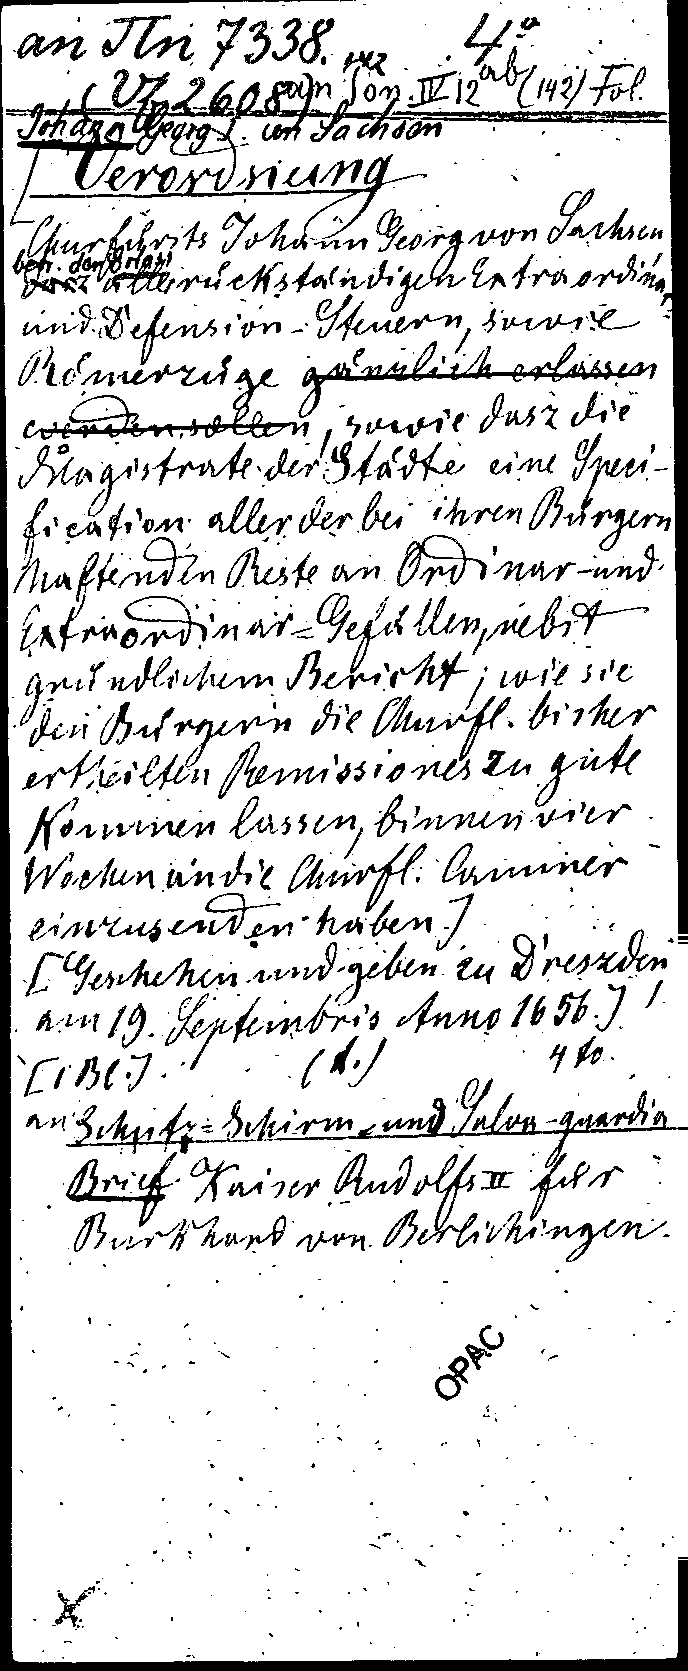 an Tln 7338. 4°
(VZ 2608) an Son. IV 12 ab (142) Fol.
Johann Georg I. von Sachsen
[Verordnung
Churfürsts Johann Georg von Sachsen
betr. den Erlass
dasz aller rückständigen Extraordinar-
und Defension-Steuern, sowie
Römerzüge gänzlich erlassen
werden sollen, sowie dasz die
Magistrate der Städte eine Speci-
fication aller der bei ihren Bürgern
haftenden Reste an Ordinar- und
Extraordinar-Gefällen, nebst
gründlichem Bericht, wie sie
den Bürgern die Churfl. bisher
ertheilten Remissiones zu gute
kommen lassen, binnen vier
Wochen an die Churfl. Cammer
einzusenden haben.]
[Geschehen und geben zu Dreszden
am 19. Septembris Anno 1656.]
[1 Bl.] (d.) 4to.
an Schutz-Schirm- und Salva-guardia
Brief Kaiser Rudolfs II für
Burkhard von Berlichingen.
OPAC
X